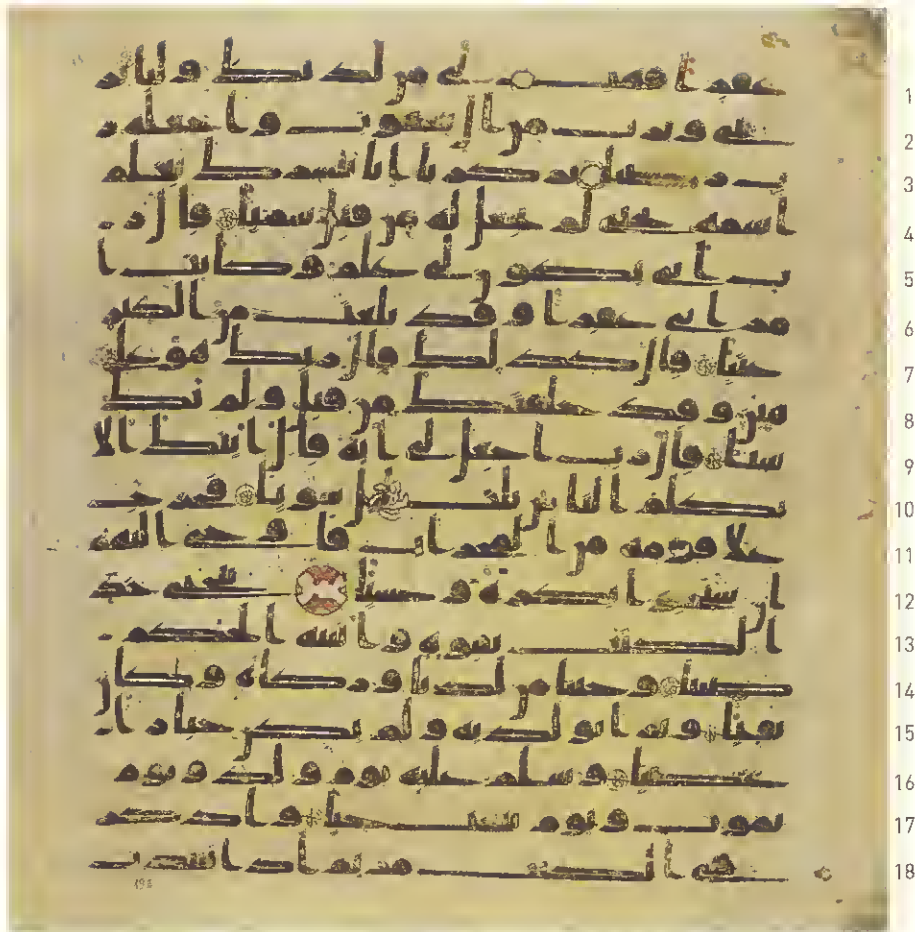 عقرا فهب لي من لدنك وليا ير 1
ثني ويرث من ال يعقوب واجعله ر 2
ب رضيا يزكريا انا نبشرك بغلم 3
اسمه يحيى لم نجعل له من قبل سميا قال ر 4
ب انى يكون لي غلم وكانت ا 5
مراتي عقرا وقد بلغت من الكبر 6
عتيا قال كذلك قال ربك هو علي 7
هين وقد خلقتك من قبل ولم تك 8
شيا قال رب اجعل لي اية قال ايتك الا 9
تكلم الناس ثلث ليل سويا فخرج 10
علا قومه من المحراب فاوحى اليهم 11
ان سبحوا بكرة وعشيا ييحيى خذ 12
الكتب بقوة واتينه الحكم 13
صبيا وحنانا من لدنا وزكاة وكان 14
تقيا وبرا بولديه ولم يكن جبارا 15
عصيا وسلم عليه يوم ولد ويوم 16
يموت ويوم يبعث حيا واذكر 17
في الكتب مريم اذ انتبذت 18